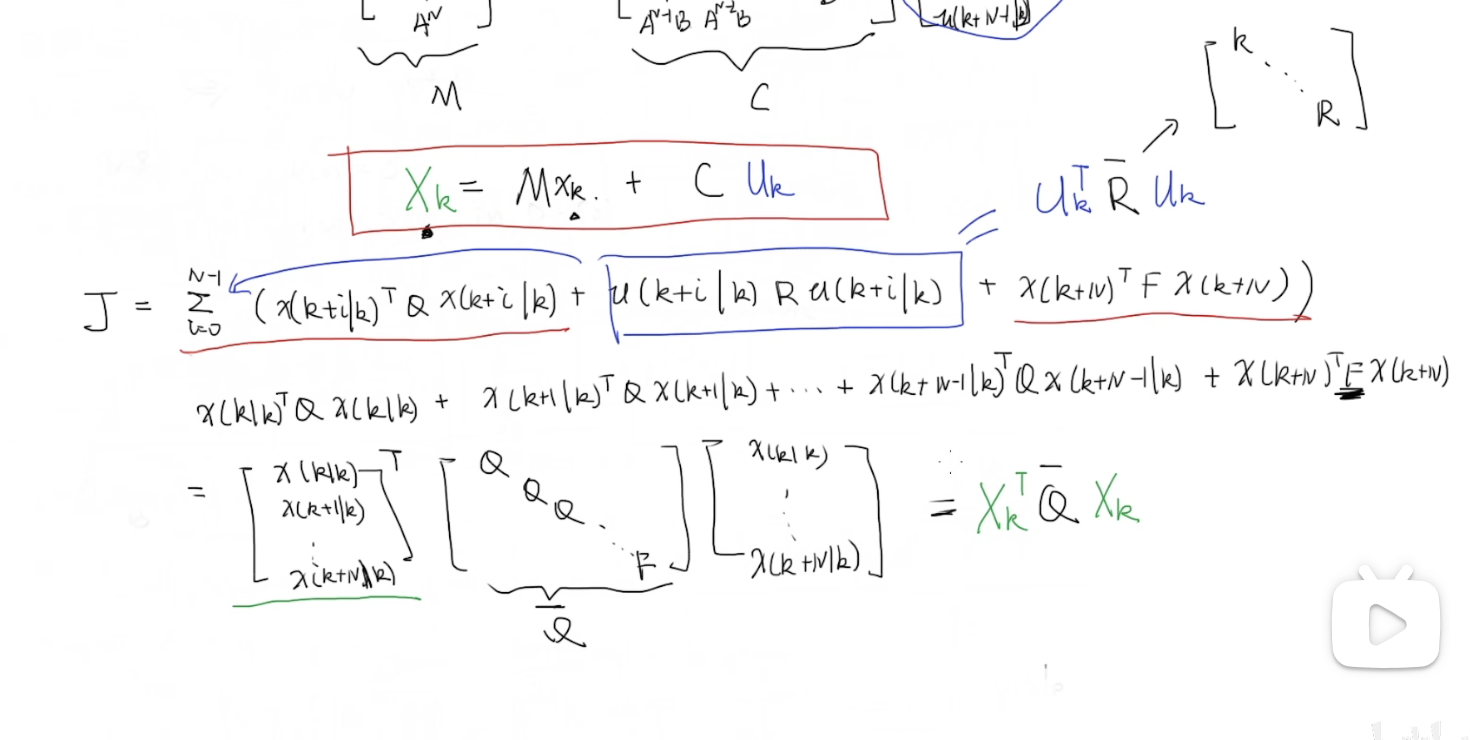 A^N A^{N-1}B A^{N-2}B u(k+N-1|k)
M C
[R ⋱ R]
X_k = M x_k. + C U_k
U_k^T R̄ U_k
J = Σ_{i=0}^{N-1} (x(k+i|k)^T Q x(k+i|k) + u(k+i|k) R u(k+i|k) + x(k+N)^T F x(k+N))
x(k|k)^T Q x(k|k) + x(k+1|k)^T Q x(k+1|k) + ⋯ + x(k+N-1|k)^T Q x(k+N-1|k) + x(k+N)^T F x(k+N)
= [x(k|k) x(k+1|k) ⋮ x(k+N|k)]^T [Q Q Q ⋱ F] [x(k|k) ⋮ x(k+N|k)] = X_k^T Q̄ X_k
Q̄